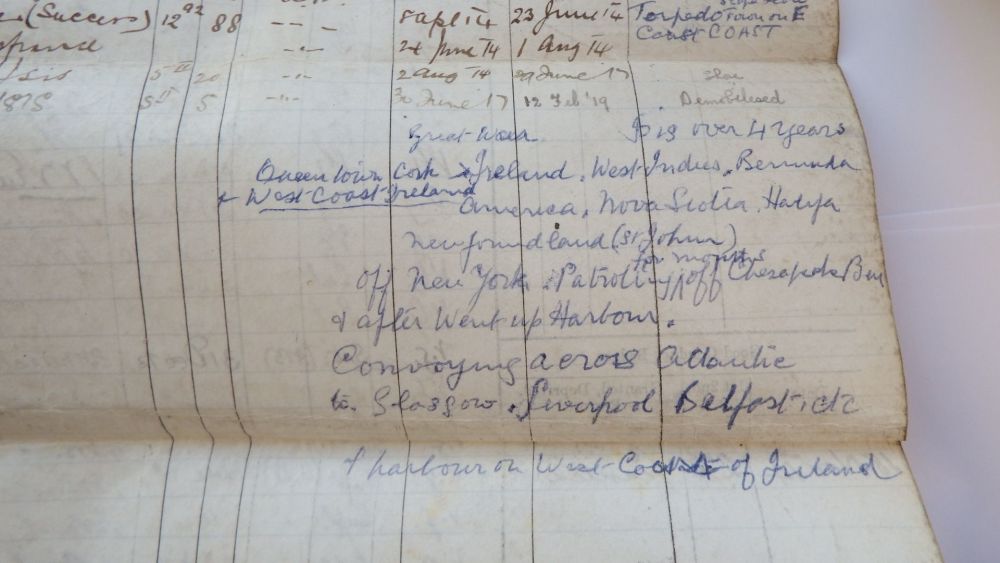 (Success) 12 92 88 –·– 8 apl 14 23 June 14 Torpedo on E
Coast COAST
france –·– 24 June 14 1 Aug 14
Isis 5 II 20 –·– 2 aug 14 29 June 17
5 II 5 –·– 30 June 17 12 Feb '19 Demobilised
Great War 19 over 4 years
Queenstown Cork Ireland. West Indies. Bermuda
& West Coast Ireland
America. Nova Scotia.
Newfoundland (St Johns)
for months
off New York. Patrolling off Chesapeake
& after Went up Harbour.
Convoying across Atlantic
to Glasgow. Liverpool Belfast. etc
& harbour on West Coast of Ireland